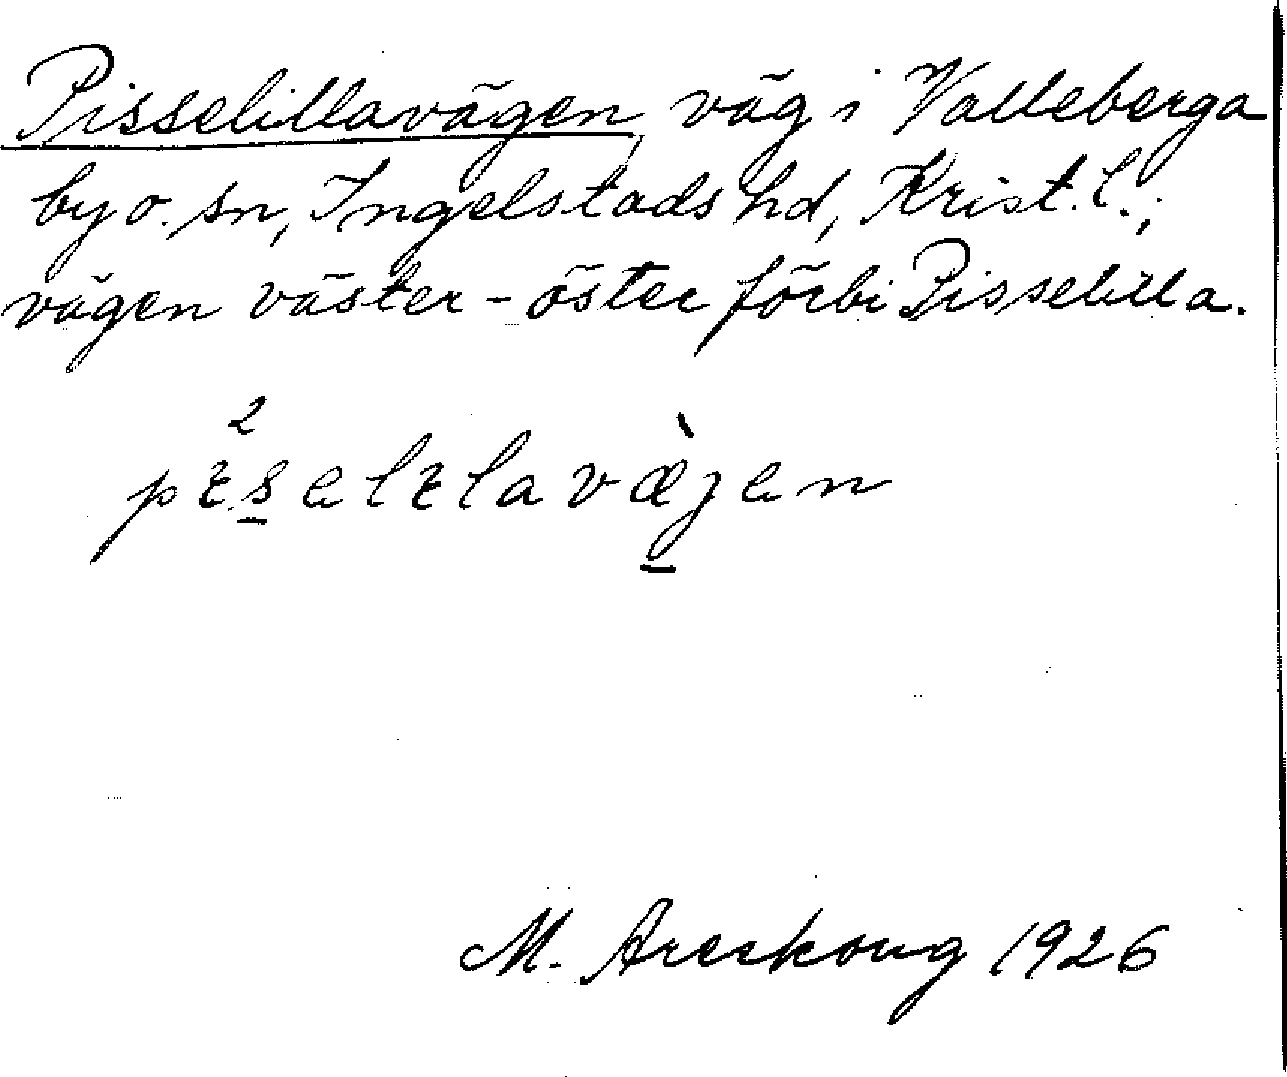 Pisselillavägen, väg i Valleberga
by o. sn, Ingelstads hd, Krist. l.;
vägen väster - öster förbi Pisselilla.
2
pɪs̲elɪlavæ̲̀jen
M. Areskoug 1926